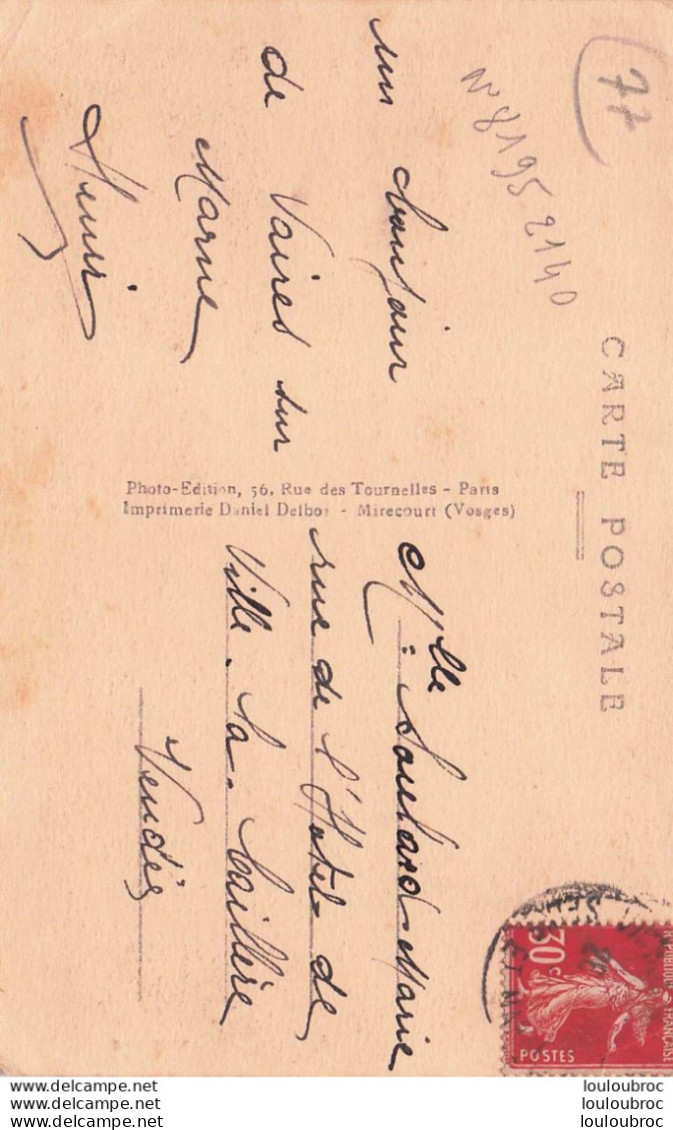 77
N° 8195 2140
CARTE POSTALE
un bonjour
de Vaires sur
Marne
Henri
Photo-Edition, 56, Rue des Tournelles - Paris
Imprimerie Daniel Delbos - Mirecourt (Vosges)
Mlle Soulard Marie
rue de l'Hotel de
Ville. La. Caillère
Vendée
30c
REPUBLIQUE FRANÇAISE
POSTES
delcampe.net
louloubroc
delcampe.net
louloubroc
delcampe.net
louloubroc